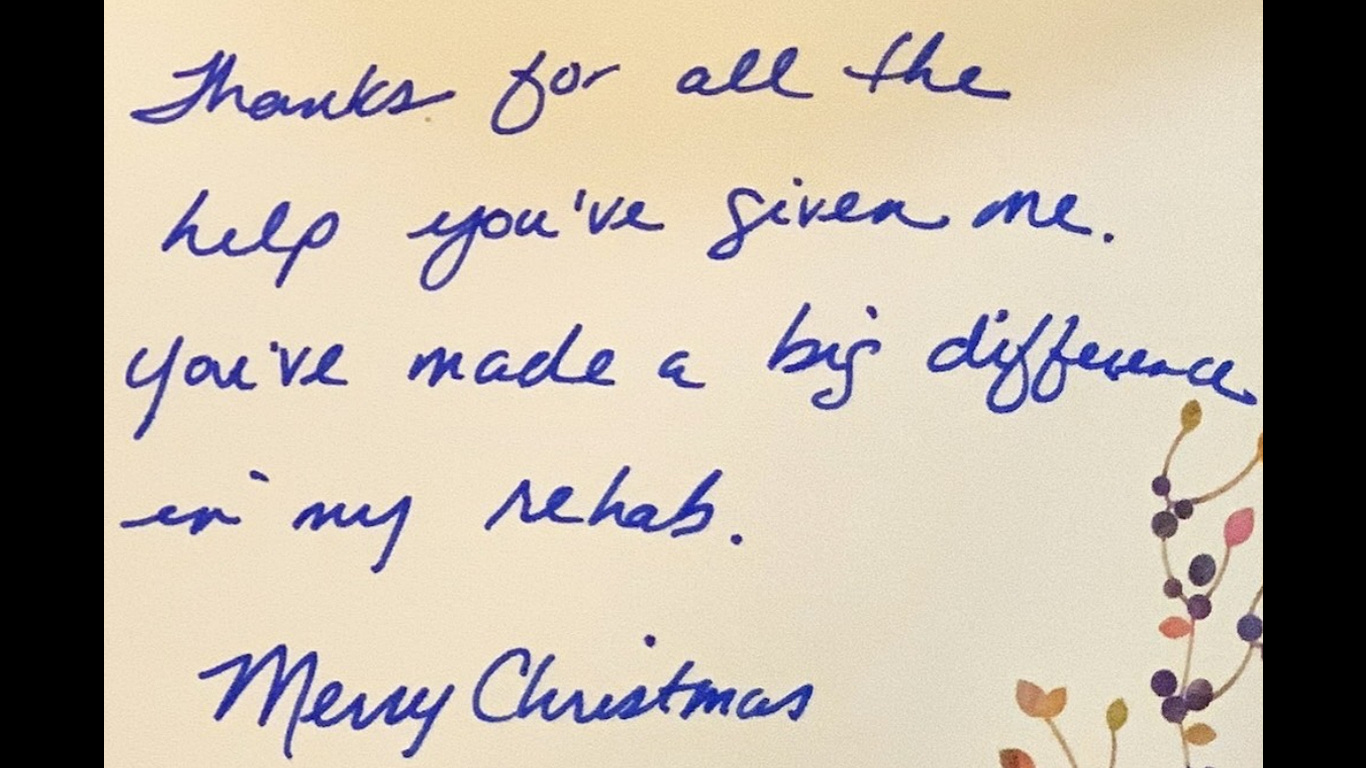 Thanks for all the
help you've given me.
You've made a big difference
in my rehab.
Merry Christmas